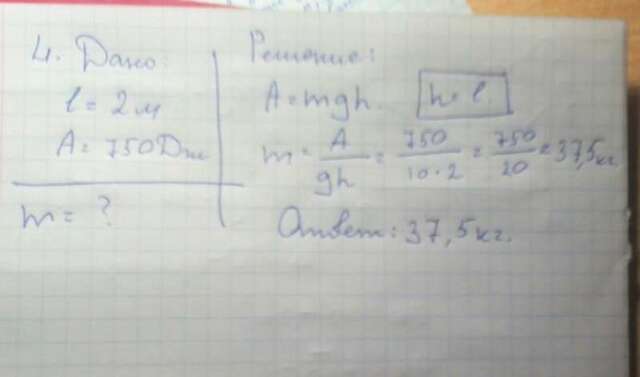 4. Дано:
l = 2 м
A = 750 Дж
m = ?
Решение:
A = mgh. h = l.
m = A/gh = 750/10·2 = 750/20 = 37,5 кг
Ответ: 37,5 кг.